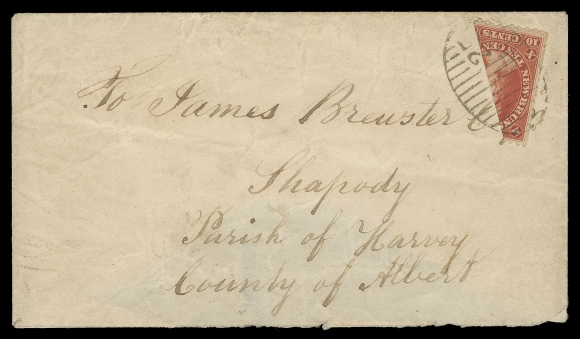 To James Brewster
Shapody
Parish of Harvey
County of Albert
X TEN CEN
10 CENTS
NEW BRUN